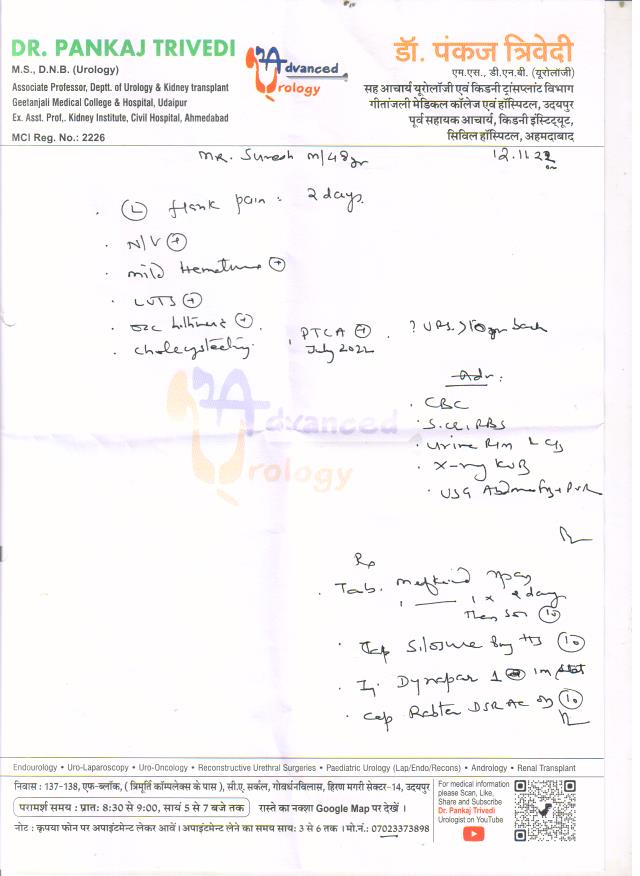 DR. PANKAJ TRIVEDI
M.S., D.N.B. (Urology)
Associate Professor, Deptt. of Urology & Kidney transplant
Geetanjali Medical College & Hospital, Udaipur
Ex. Asst. Prof,. Kidney Institute, Civil Hospital, Ahmedabad
MCI Reg. No.: 2226
Advanced
Urology
डॉ. पंकज त्रिवेदी
एम.एस., डी.एन.बी. (यूरोलॉजी)
सह आचार्य यूरोलॉजी एवं किडनी ट्रांसप्लांट विभाग
गीतांजली मेडिकल कॉलेज एवं हॉस्पिटल, उदयपुर
पूर्व सहायक आचार्य, किडनी इंस्टिट्यूट,
सिविल हॉस्पिटल, अहमदाबाद
Mr. Suresh M/48yr 12.11.22
L flank pain : 2 days
N/V +
mild Hematuria +
LUTS +
+
PTCA + ? URS
July 2022
Adv:
CBC
S.Cr, RBS
Urine R/m
X-ray KUB
USG + PVR
Advanced
Urology
Rx
Tab.
1 —— 1 x 2 days
Then SOS 10
Cap 8mg HS 10
Inj Dynapar 1 im stat
Cap DSR AC 10
Endourology • Uro-Laparoscopy • Uro-Oncology • Reconstructive Urethral Surgeries • Paediatric Urology (Lap/Endo/Recons) • Andrology • Renal Transplant
निवास : 137-138, एफ-ब्लॉक, ( त्रिमूर्ति कॉम्पलेक्स के पास ), सी.ए. सर्कल, गोवर्धनविलास, हिरण मगरी सेक्टर-14, उदयपुर
परामर्श समय : प्रातः 8:30 से 9:00, सायं 5 से 7 बजे तक रास्ते का नक्शा Google Map पर देखें ।
नोट : कृपया फोन पर अपाइंटमेन्ट लेकर आवें । अपाइंटमेन्ट लेने का समय सायः 3 से 6 तक । मो.नं.: 07023373898
For medical information
please Scan, Like,
Share and Subscribe
Dr. Pankaj Trivedi
Urologist on YouTube